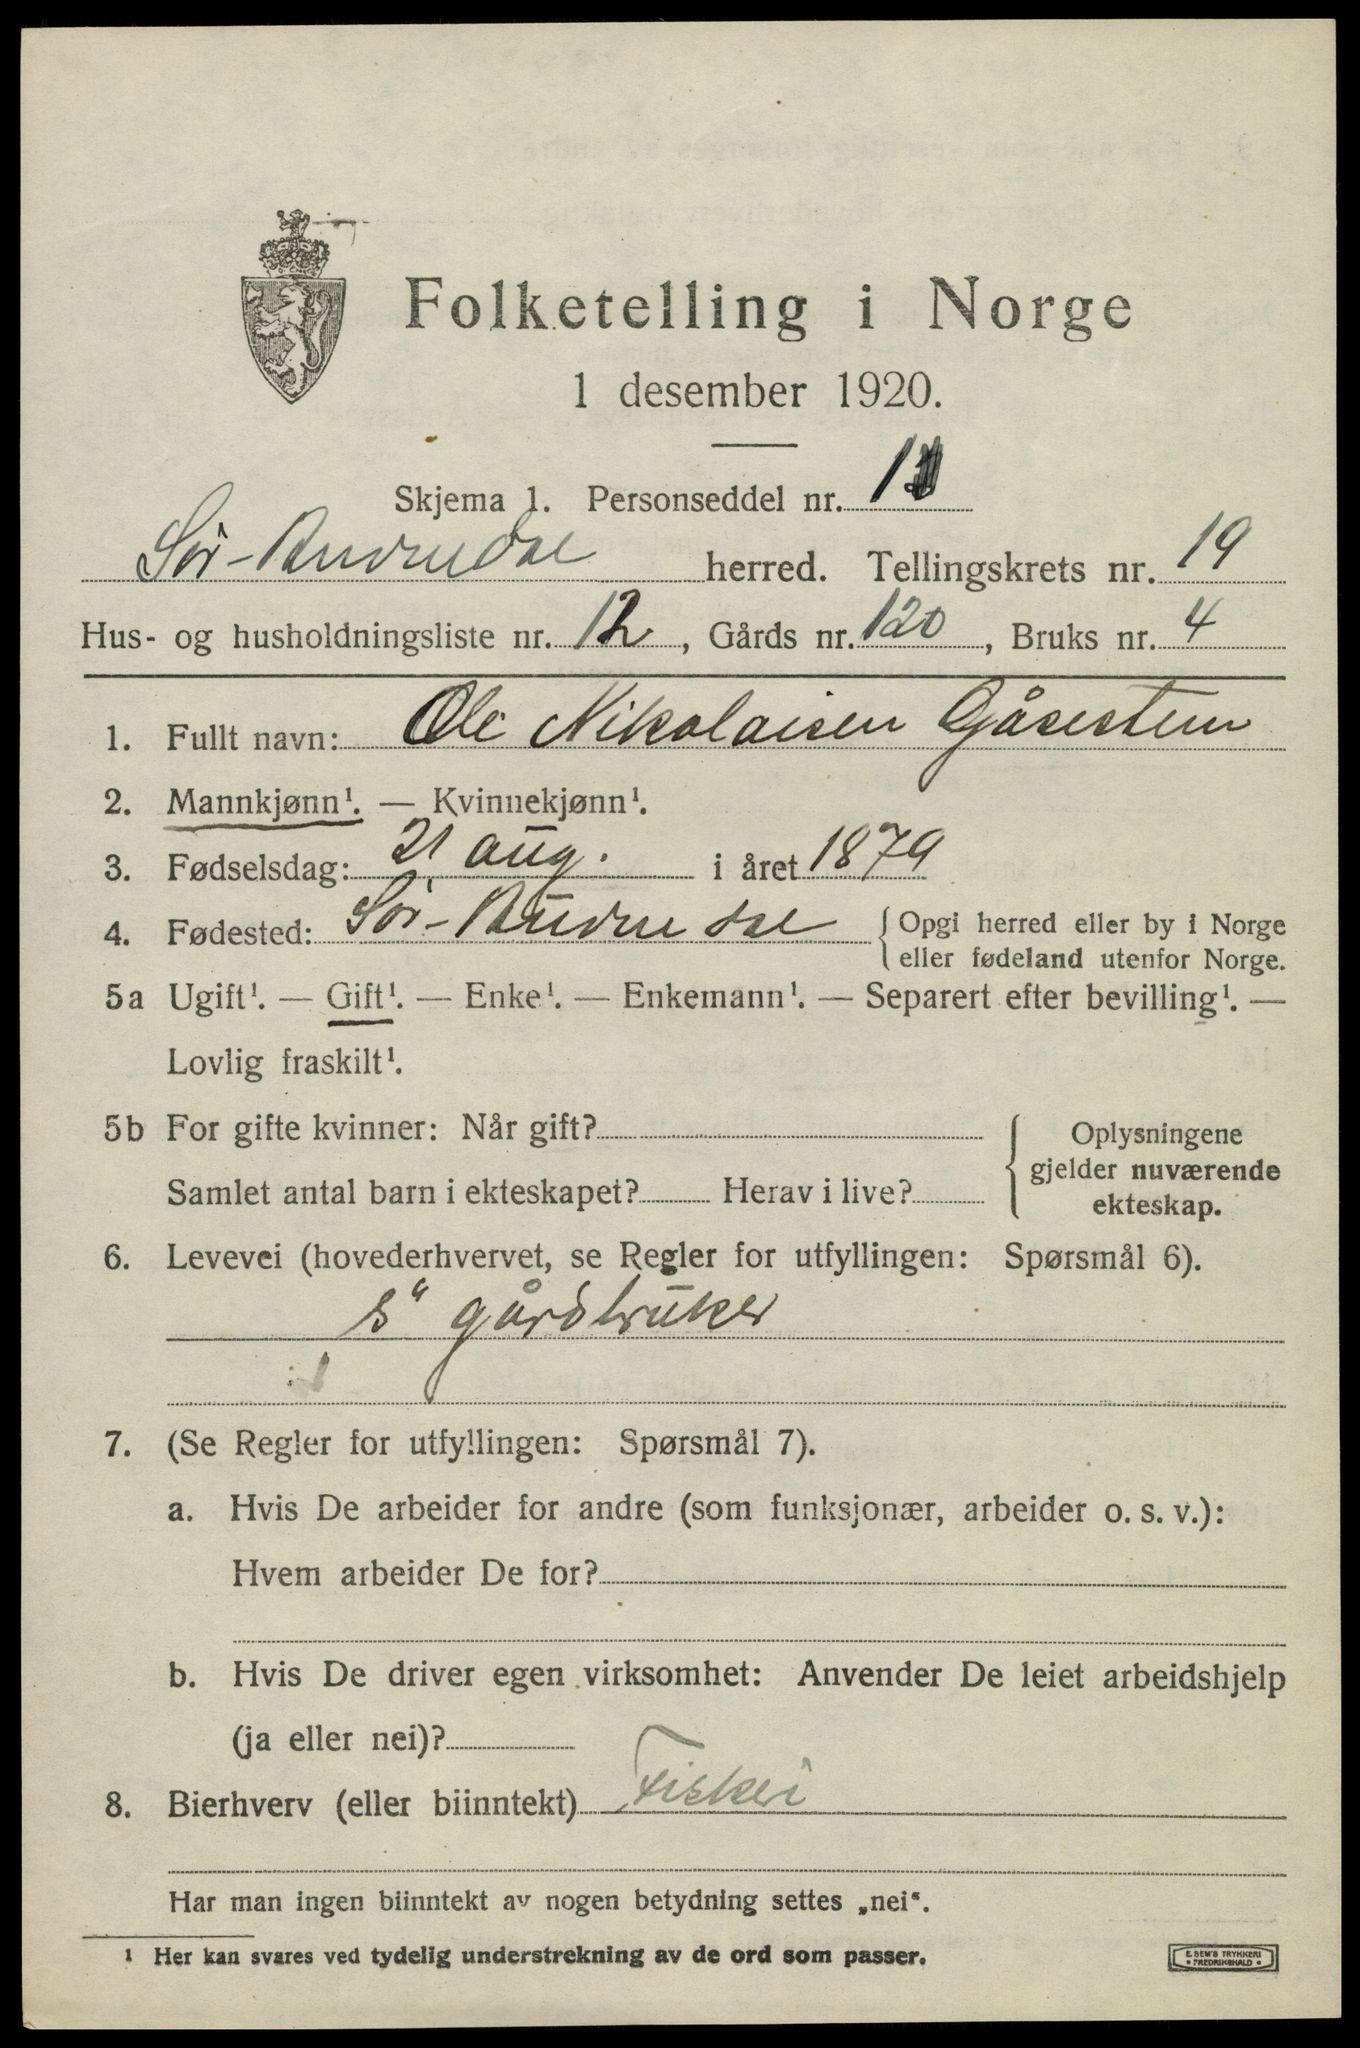 Folketelling i Norge
1 desember 1920.
Skjema 1. Personseddel nr. 1
Sør-Audnedal herred. Tellingskrets nr. 19
Hus- og husholdningsliste nr. 12, Gårds nr. 120, Bruks nr. 4
1. Fullt navn: Ole Nikolaisen Gåsestein
2. Mannkjønn¹. — Kvinnekjønn¹.
3. Fødselsdag: 21 aug. i året 1879
4. Fødested: Sør-Audnedal {Opgi herred eller by i Norge
eller fødeland utenfor Norge.
5a Ugift¹. — Gift¹. — Enke¹. — Enkemann¹. — Separert efter bevilling¹. —
Lovlig fraskilt¹.
5b For gifte kvinner: Når gift? { Oplysningene
gjelder nuværende
Samlet antal barn i ekteskapet? Herav i live?
ekteskap.
6. Levevei (hovederhvervet, se Regler for utfyllingen: Spørsmål 6).
s" gårdbruker
7. (Se Regler for utfyllingen: Spørsmål 7).
a. Hvis De arbeider for andre (som funksjonær, arbeider o. s. v.):
Hvem arbeider De for?
b. Hvis De driver egen virksomhet: Anvender De leiet arbeidshjelp
(ja eller nei)?
8. Bierhverv (eller biinntekt) Fiskeri
Har man ingen biinntekt av nogen betydning settes „nei“.
¹ Her kan svares ved tydelig understrekning av de ord som passer.
E. SEM'S TRYKKERI
• FREDRIKSHALD •